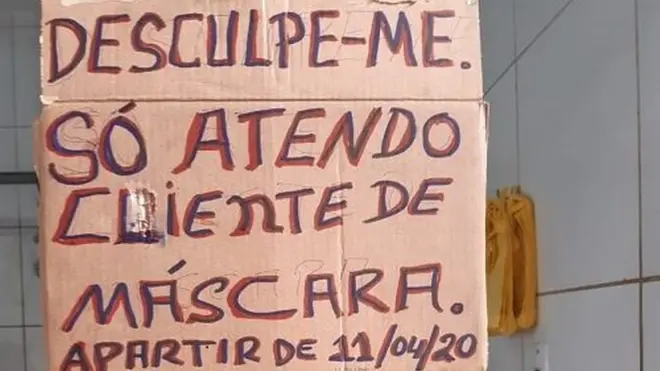 DESCULPE-ME.
SÓ ATENDO
CLIENTE DE
MÁSCARA.
APARTIR DE 11/04/20